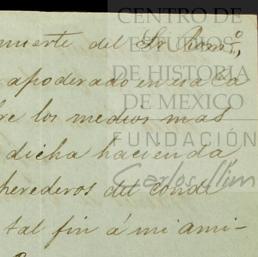 muerte del Sr. Rom.º
apoderado en esa Ca
re los medios mas
dicha hacienda
herederos del conde
tal fin á mi ami-
CENTRO DE
ESTUDIOS
DE HISTORIA
DE MEXICO
FUNDACIÓN
Carlos Slim